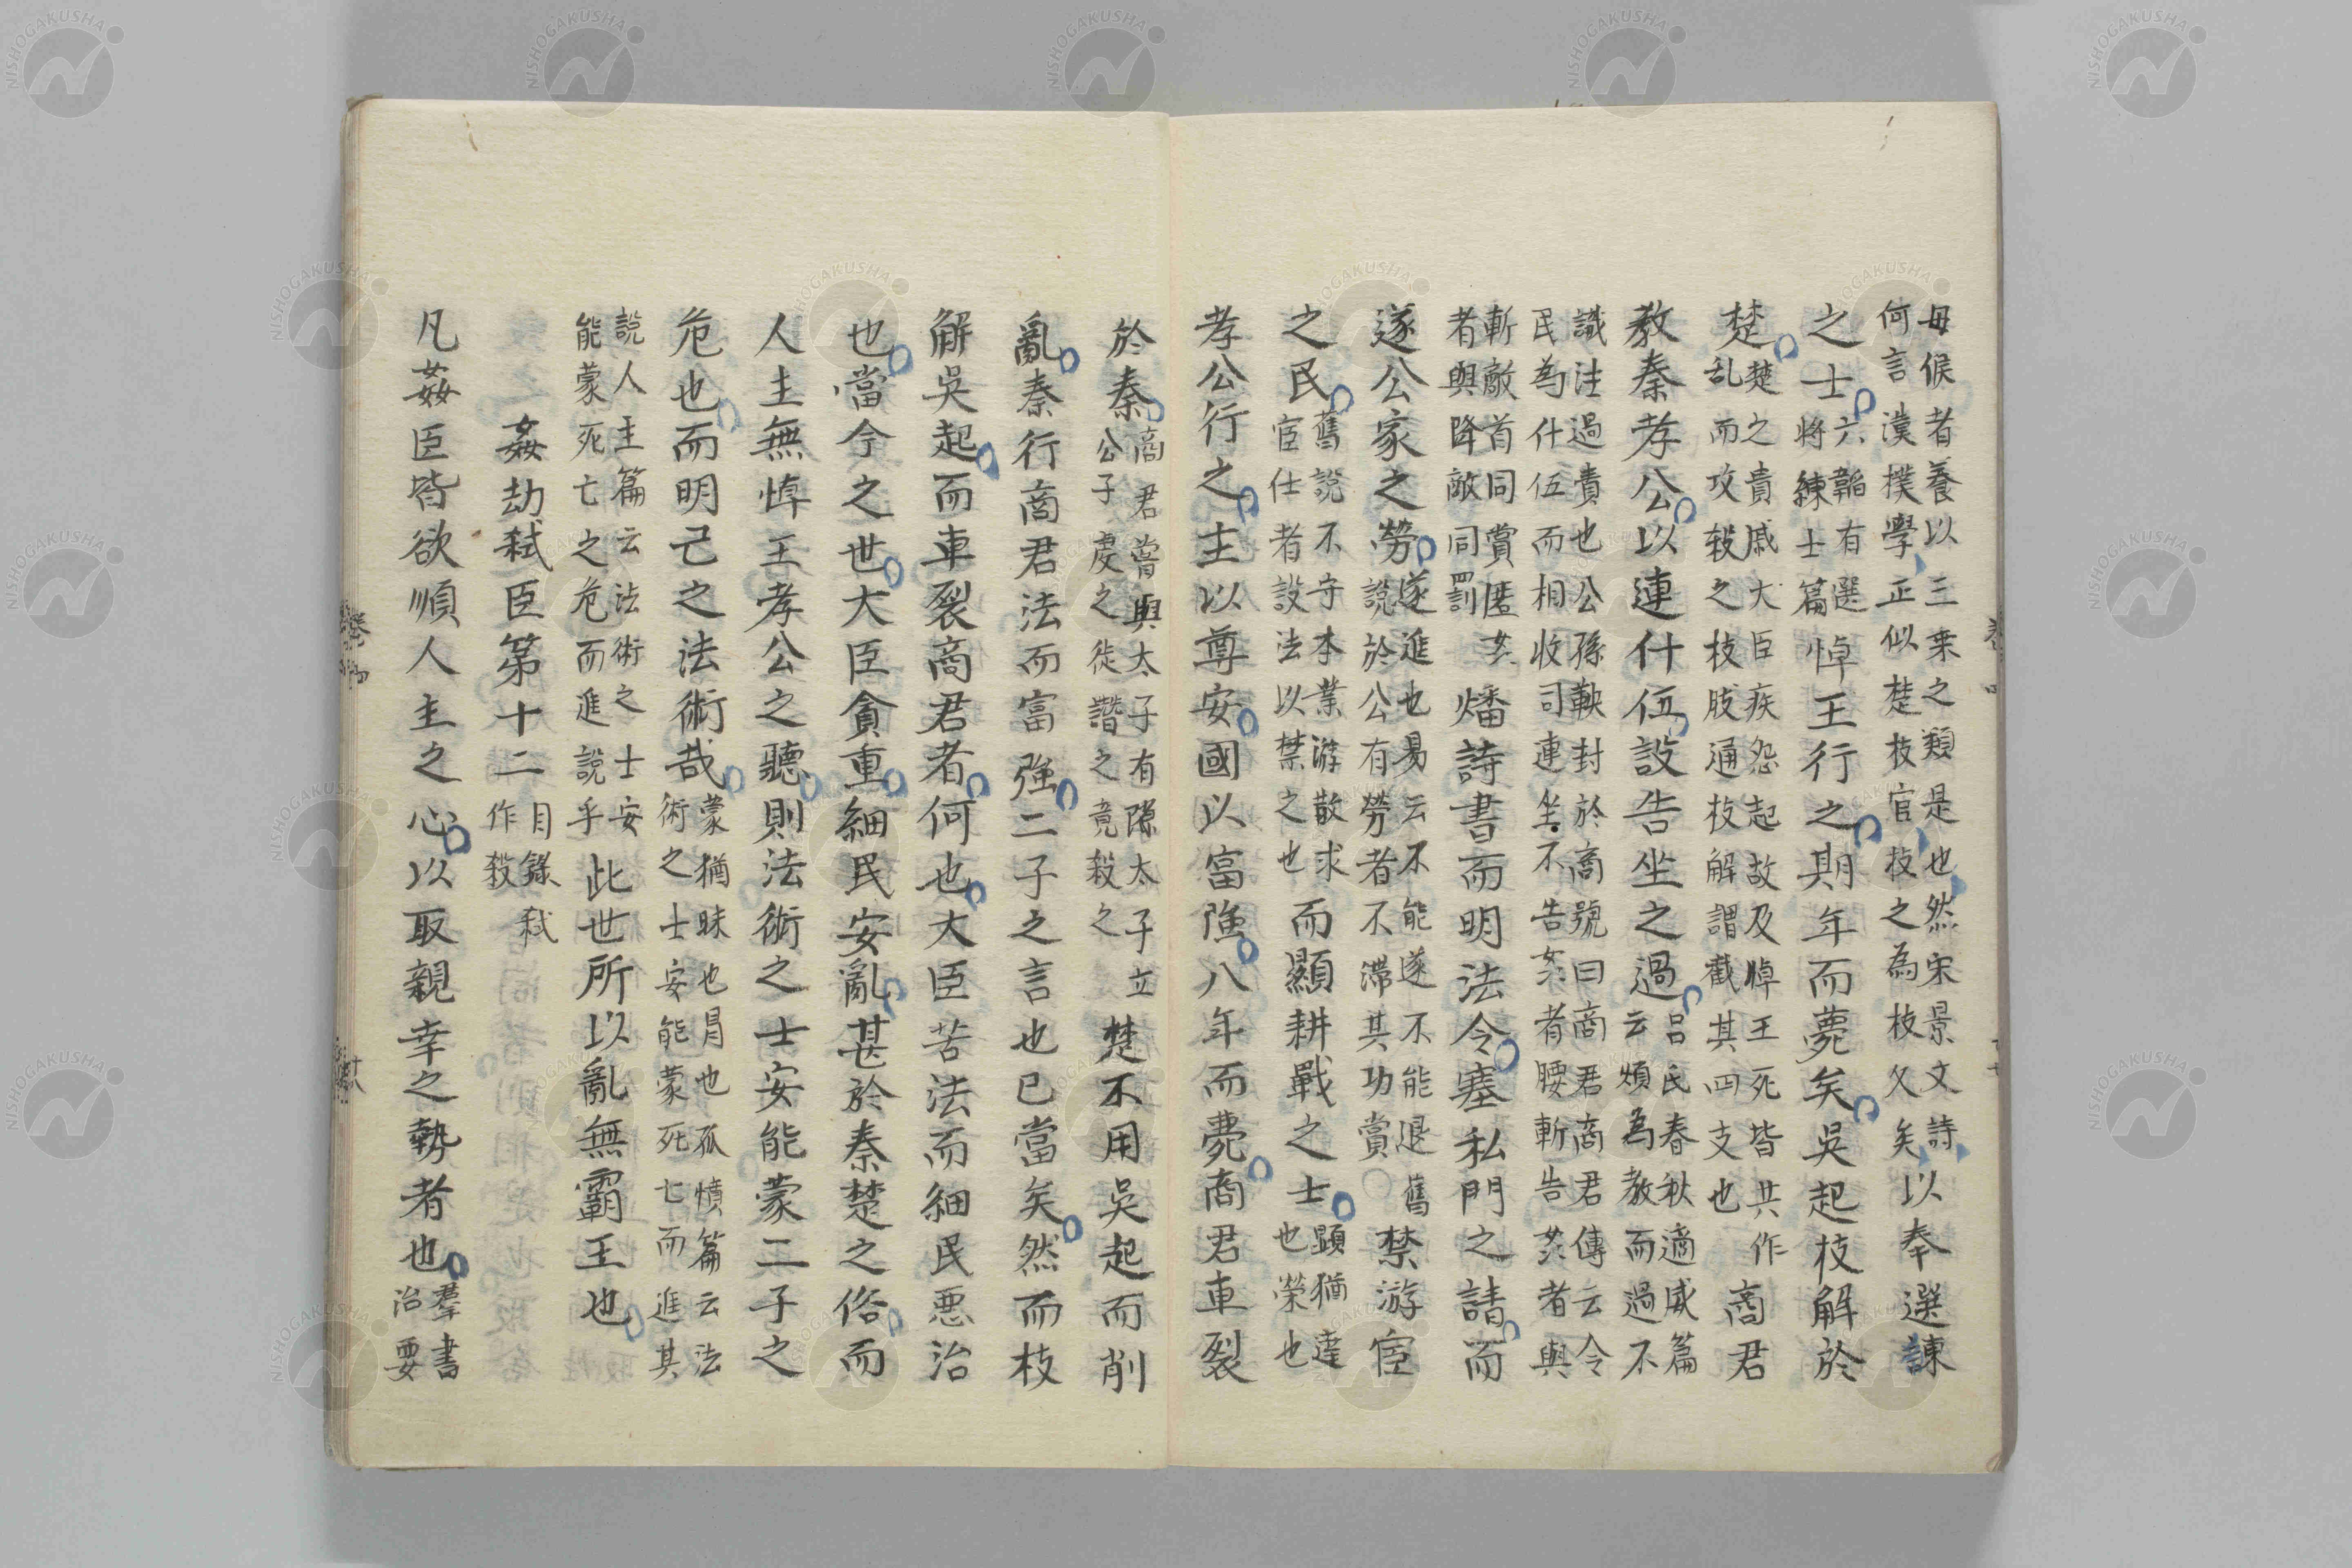 毋候者養以三乗之類是也然宋景文詩何言漢撲學正似楚枝官枝之為枝久矣以奉選諫
之士六韜有選將練士篇悼王行之期年而薨矣吳起枝解於
楚楚之貴戚大臣疾怨起故及悼王死皆共作乱而攻殺之枝肢通枝解謂截其四支也商君
教秦孝公以連什伍設告坐之過呂氏春秋適威篇云煩為教而過不
識注過責也公孫鞅封於商號曰商君商君傳云令民為什伍而相收司連坐不告姦者腰斬告姦者與
斬敵首同賞匿姦者與降敵同罰燔詩書而明法令塞私門之請而
遂公家之勞遂進也易云不能遂不能退舊說於公有勞者不滞其功賞○禁游宦
之民舊說不守本業游散求宦仕者設法以禁之也而顯耕戰之士顕猶達也榮也
孝公行之主以尊安國以富強八年而薨商君車裂
於秦商君嘗與太子有隙太子立公子虔之徒譖之竟殺之楚不用吳起而削
亂秦行商君法而富強二子之言也已當矣然而枝
解吳起而車裂商君者何也大臣苦法而細民惡治
也當今之世大臣貪重細民安亂甚於秦楚之俗而
人主無悼王孝公之聽則法術之士安能蒙二子之
危也而明己之法術哉蒙猶昧也冒也孤憤篇云法術之士安能蒙死亡而進其
說人主篇云法術之士安能蒙死亡之危而進說乎此世所以亂無霸王也
姦劫弑臣第十二目錄弑作殺
凡姦臣皆欲順人主之心以取親幸之勢者也羣書治要
卷四
十八